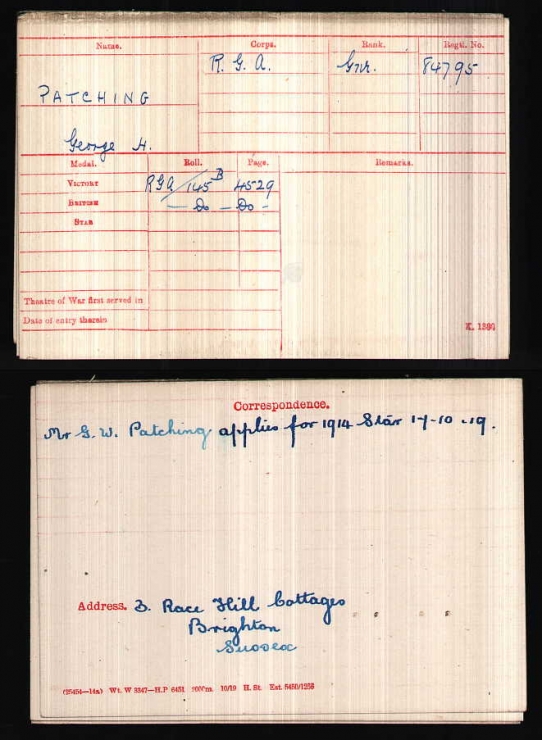 Name. Corps. Rank. Regtl. No.
R. G. A. Gnr. 84795
PATCHING
George H.
Medal. Roll. Page. Remarks.
VICTORY RGA/145 B 4529
BRITISH — Do — Do —
STAR
Theatre of War first served in
Date of entry therein
K. 1380
Correspondence.
Mr G. W. Patching applies for 1914 Star 17-10-19.
Address. 3. Race Hill Cottages
Brighton
Sussex
Wt. W 3347—H.P 10/19 H. St.